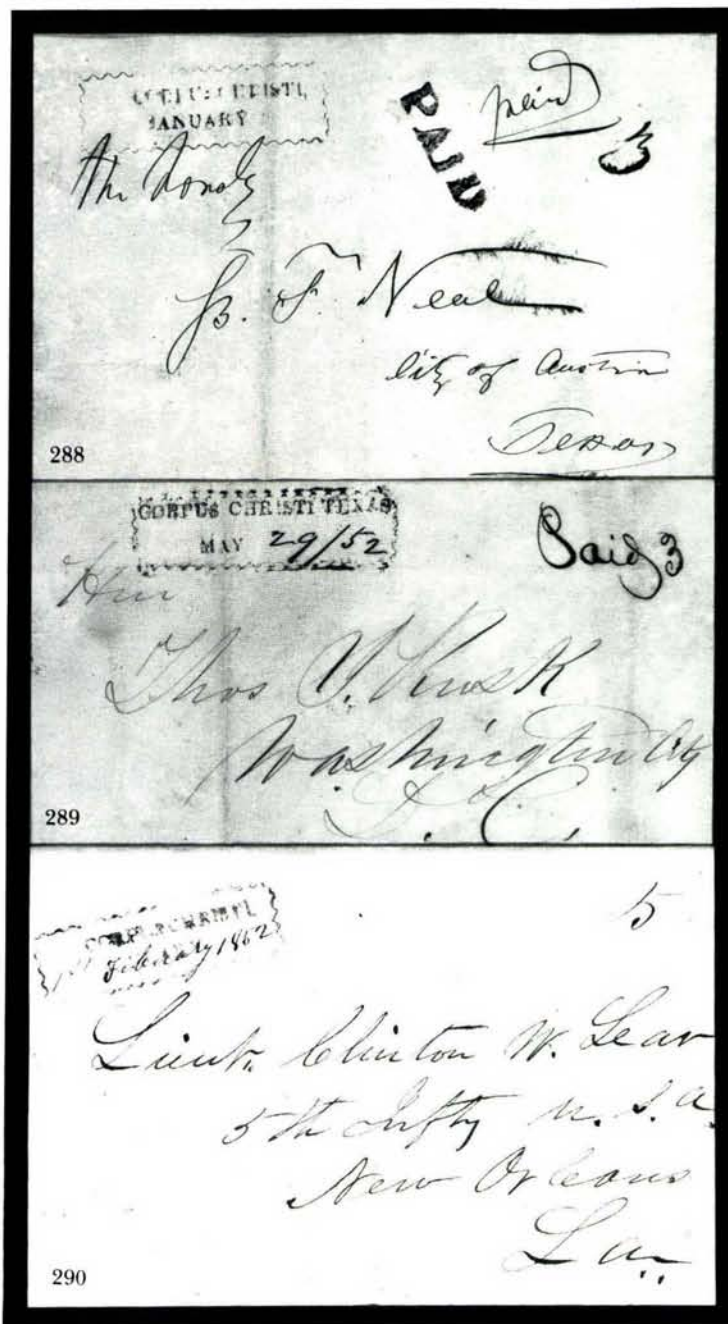 CORPUS CHRISTI,
JANUARY
PAID
paid
3
The Honble
B. F. Neal
City of Austin
Texas
288
CORPUS CHRISTI TEXAS
MAY 29/52
Paid 3
Hon
Thos J. Rusk
Washington City
D. C.
289
CORPUS CHRISTI,
1st February 1852
5
Lieut. Clinton W. Lear
5th Infty U. S. A.
New Orleans
La
290